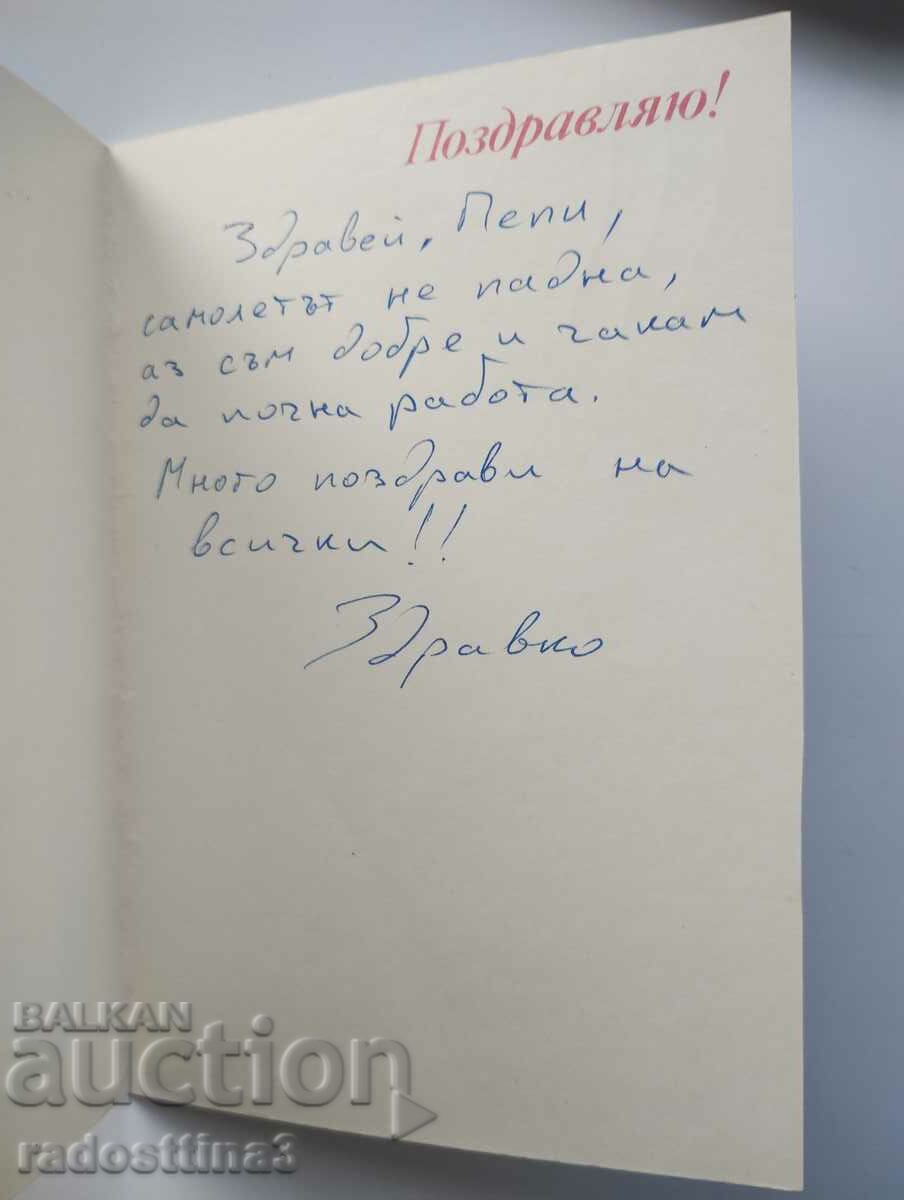 Поздравляю!
Здравей, Пепи,
самолетът не падна,
аз съм добре и чакам
да почна работа.
Много поздрави на
всички!!
Здравко
BALKAN
auction
radosttina3